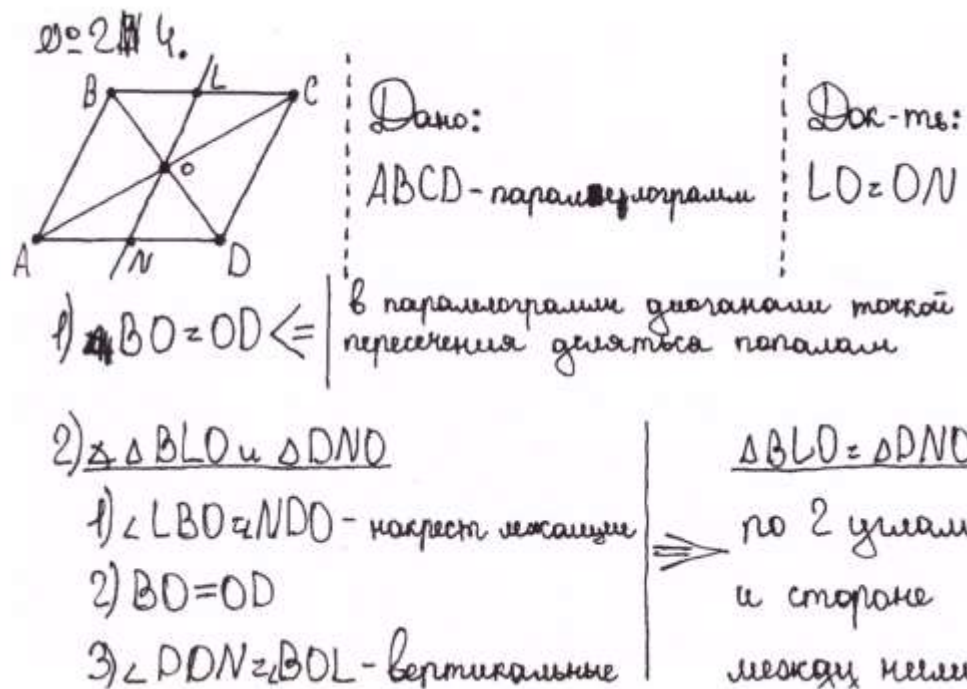 № 24.
B L C
O
A N D
Дано:
ABCD - параллелограмм
Док-ть:
LO = ON
1) BO = OD <= в параллелограмм диоганали точкой
пересечения деляться попалам
2) ∡ △BLO и △DNO
1) ∠LBO = ∠NDO - накрест лежащие
2) BO = OD
3) ∠DON = ∠BOL - вертикальные
=>
△BLO = △DNO
по 2 углам
и стороне
между ними